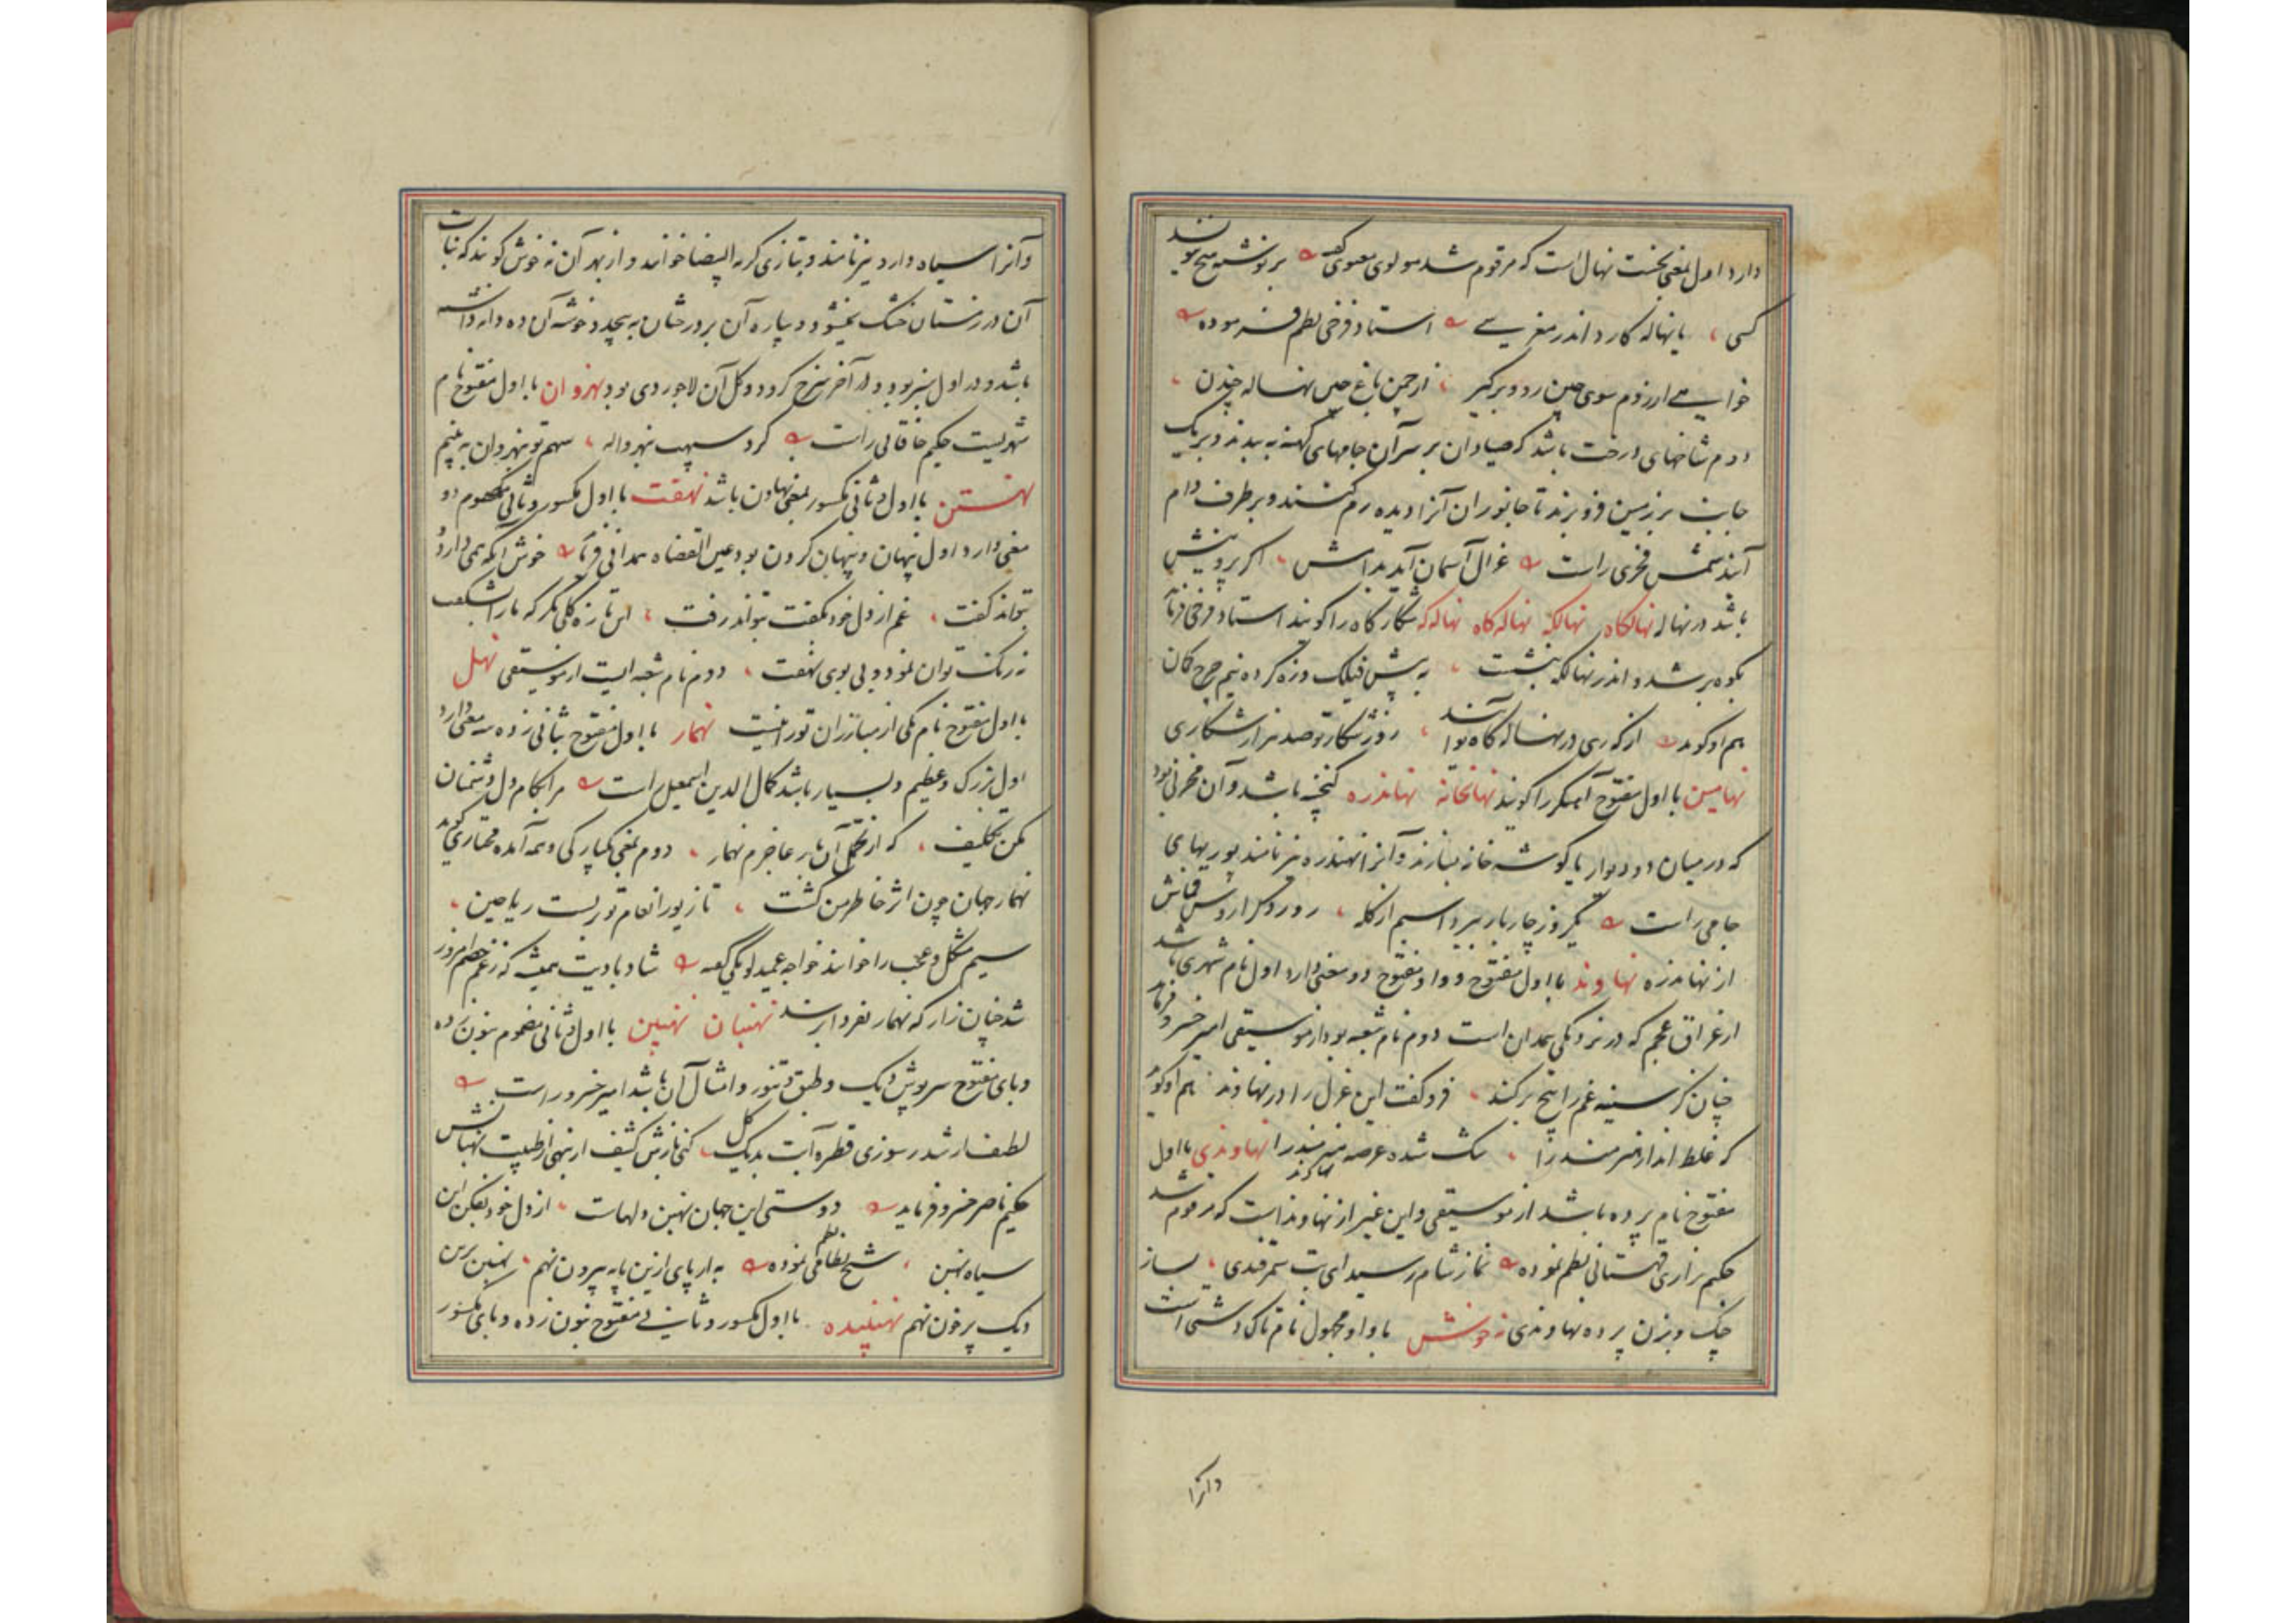 دارد اول بمعنی نخست نهال است که مرقوم شد مولوی معنوی گفته بر نوشته هیچ بنویسد
کسی یا نهاله کارد اندر مغرسی استاد فرخی نظم فرموده
خواسته از رزم سوی چین رو و برگیر از چمن باغ چین نهاله چندن
دوم شاخهای درخت باشد که صیادان بر سر آن جامهای کهنه به بندند و بر یک
جانب بر زمین فرو برند تا جانوران آنرا دیده رم کنند و بطرف دام
آیند شمس فخری راست غزال آسمان آید بدامش اگر پروینش
باشد در نهاله نهالگاه نهالگه نهاله گاه نهاله گه شکارگاه را گویند استاد فرخی فرماید
بکوه بر شد و اندر نهالگه بنشست به پیش فیلک وزه کرده نیم چرخ کمان
هم او گوید از گوری در نهاله گاه تو آیند روز شکار تو صد هزار شکاری
نهامین با اول مفتوح آهنگر را گویند نهانخانه نهاندره گنجه باشد و آن مخزنی بود
که در میان دو دیوار یا گوشه خانه بسازند و آنرا نهندره نیز نامند پوربهای
جامی راست یکروز چار بار ببرد اسبم از گله
از نهاندره نهاوند با اول مفتوح و واو مفتوح دو معنی دارد اول نام شهری باشد
از عراق عجم که در نزدیکی همدان است دوم نام شعبه بود از موسیقی امیر خسرو فرماید
چنان کز سینه غم را بیخ برکند فرو گفت این غزل را در نهاوند هم او گوید
که غلط انداز هنرمند را شده عرصه نهاوندی با اول
مفتوح نام پرده باشد از موسیقی و این غیر از نهاوند است که مرقوم شد
حکیم نزاری قهستانی نظم نموده نماز شام رسید ای بت سمرقندی بساز
چنگ و بزن پرده نهاوندی نهخوش با واو مجهول نام تاک دشتی است
وانرا
وآنرا سیاه دارو نیز نامند و بتازی کرمة البیضا خوانند و از بهر آن نه خوش گویند که نبات
آن در زمستان خشک نمیشود و بیاره آن بر درختان به پیچد و خوشه آن ده دانه
باشد و در اول سبز بود و در آخر سرخ گردد و گل آن لاجوردی بود نهروان با اول مفتوح نام
شهریست حکیم خاقانی راست کرد سپهت نهرواله سهم تو نهروان به بینم
نهستن با اول و ثانی مکسور بمعنی نهادن باشد نهفت با اول مکسور و ثانی مضموم دو
معنی دارد اول پنهان و پنهان کردن بود عین القضاة همدانی فرماید خوش آنکه همی دارد و
بتواند گفت غم از دل خود بگفت بتواند رفت این تازه گلی نگر که ما را بشکفت
نه رنگ توان نمود و نی بوی نهفت دوم نام شعبه ایست از موسیقی نهل
با اول مفتوح نام یکی از مبارزان تورانیست نهمار با اول مفتوح بثانی زده سه معنی دارد
اول بزرگ و عظیم و بسیار باشد کمال الدین اسمعیل راست مرا بکام دل دشمنان
مکن تکلیف که از تحمل آن بار عاجزم نهمار دوم بمعنی یکبارگی و همه آمده مختاری گوید
نهمار جهان چون اثر خاطر من گشت تا زیور انعام تو بر بست ریاحین
سیم مشکل و عجب را خوانند خواجه عمید لویکی گفته شاد بادیت همیشه که ز غم خصم امروز
شد چنان زار که نهمار بفردا برسد نهنبان نهنبن با اول و ثانی مضموم بنون زده
و بای مفتوح سرپوش دیگ و طبق و تنور و امثال آن باشد امیر خسرو راست
لطف ار شد ر سوزی قطره آبت بدیگ گل کنی
حکیم ناصر خسرو فرماید دوستی این جهان نهنبن دلهاست از دل خود بفکن این
سیاه نهنبن شیخ نظامی نظم نموده به ار پای ازین پایه بیرون نهم نهنبن برین
دیگ پر خون نهم نهنبیده با اول مکسور و ثانی مفتوح بنون زده و بای مکسور